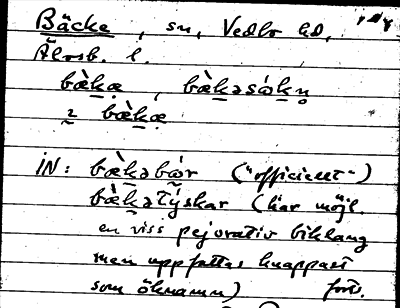 Bäcke, sn, Vedbo hd,
Älvsb. l.
bæ̀kæ, bæ̀kəsókn̥
i bæ̀kæ
IN: bæ̀kəbær ("officiellt")
bæ̀kətýskar (har möjl.
en viss pejorativ biklang
men uppfattas knappast
som öknamn) forts.